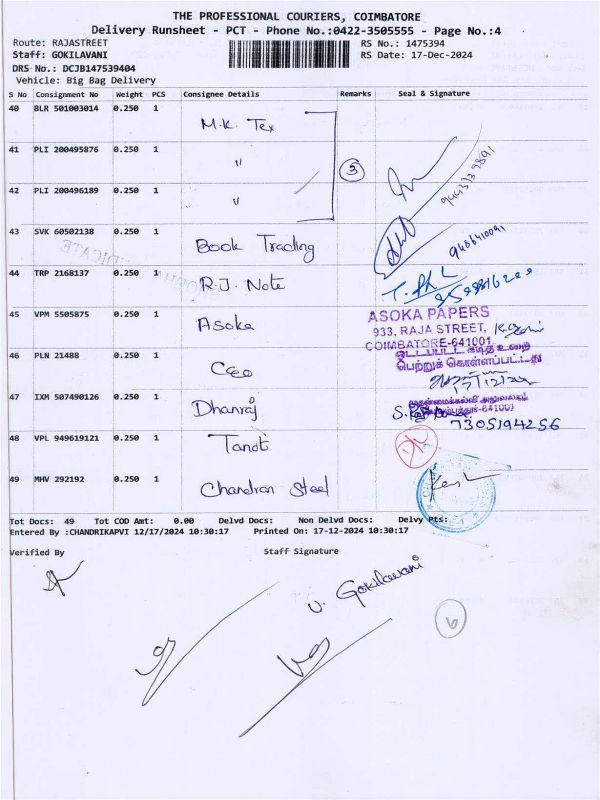 THE PROFESSIONAL COURIERS, COIMBATORE
Delivery Runsheet - PCT - Phone No.:0422-3505555 - Page No.:4
Route: RAJASTREET RS No.: 1475394
Staff: GOKILAVANI RS Date: 17-Dec-2024
DRS No.: DCJB147539404
Vehicle: Big Bag Delivery
S No Consignment No Weight PCS Consignee Details Remarks Seal & Signature
40 BLR 501003014 0.250 1 M.K. Tex
41 PLI 200495876 0.250 1 〃 3
42 PLI 200496189 0.250 1 〃
43 SVK 60502138 0.250 1 Book Trading
44 TRP 2168137 0.250 1 R.J. Note
45 VPM 5505875 0.250 1 Asoka
ASOKA PAPERS
933, RAJA STREET,
COIMBATORE-641001
46 PLN 21488 0.250 1 CEO
பெற்றுக் கொள்ளப்பட்டது
17/12/24
47 IXM 507490126 0.250 1 Dhanraj
7305194256
48 VPL 949619121 0.250 1
49 MHV 292192 0.250 1 Chandran Steel
Tot Docs: 49 Tot COD Amt: 0.00 Delvd Docs: Non Delvd Docs: Delvy Pts:
Entered By :CHANDRIKAPVI 12/17/2024 10:30:17 Printed On: 17-12-2024 10:30:17
Verified By Staff Signature
V. Gokilavani
6